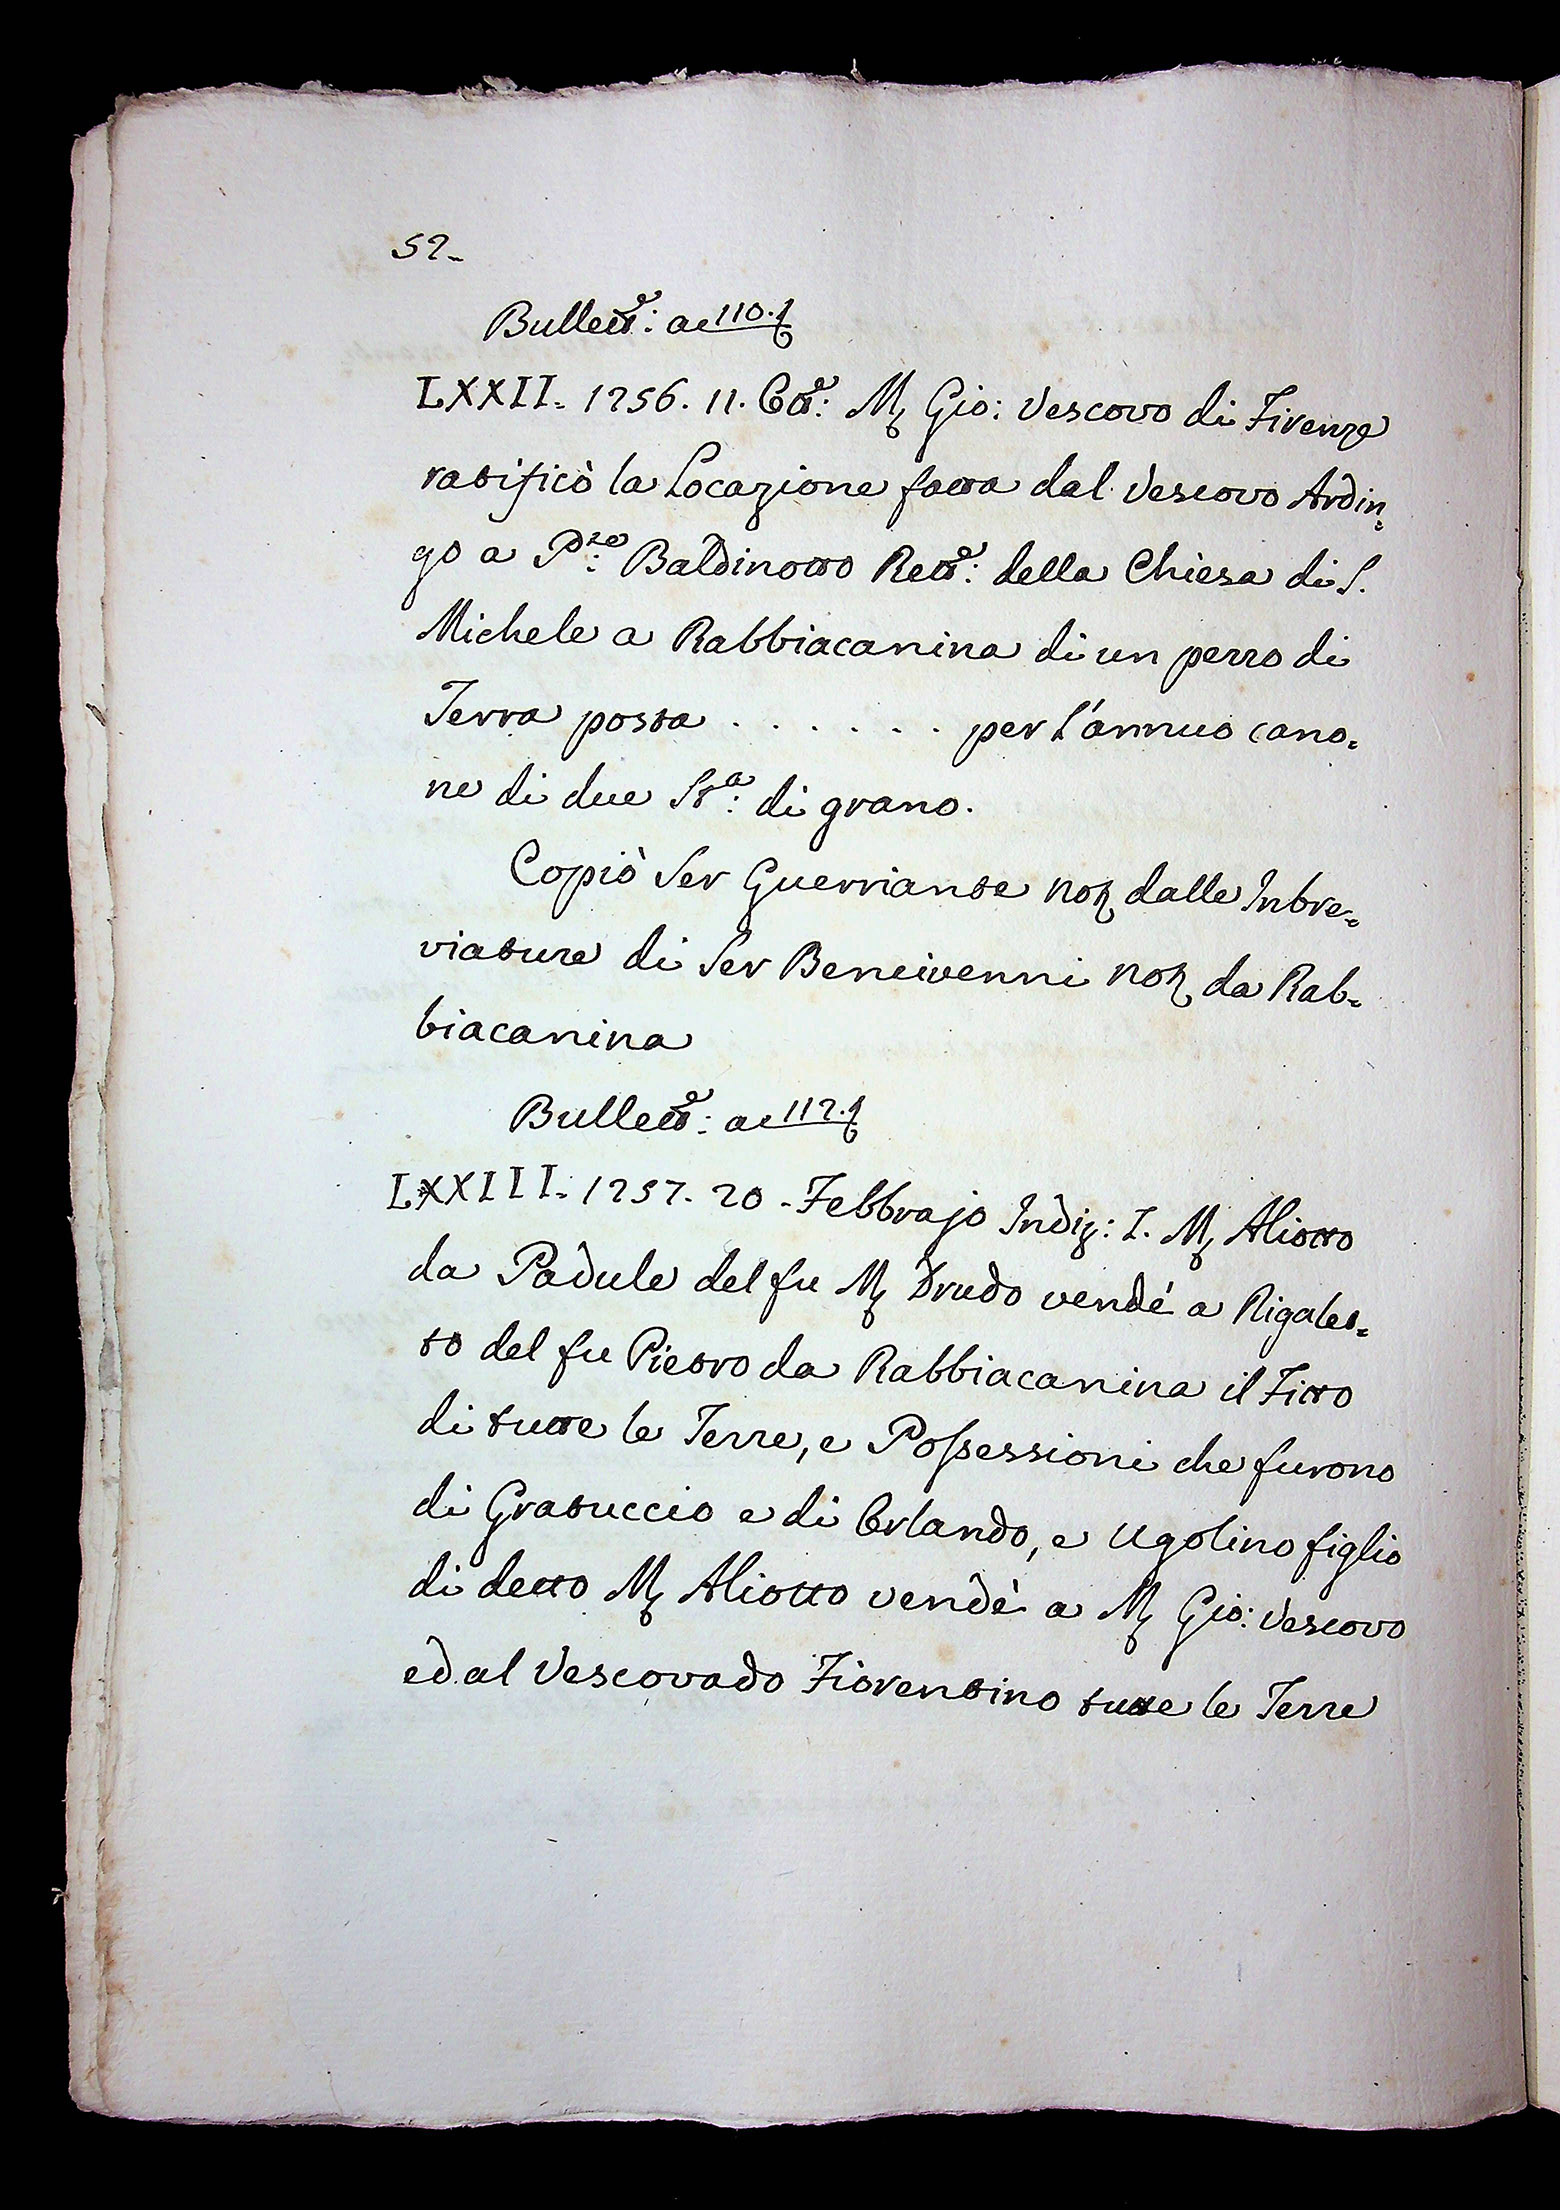 52.
Bullett.e: a c 110. t.
LXXII. 1256. 11. Ott.e: M. Gio: Vescovo di Firenze
ratificò la Locazione fatta dal Vescovo Ardin=
go a P.re: Baldinotto Rett.e: della Chiesa di S.
Michele a Rabbiacanina di un pezzo di
Terra posta . . . . . . . per l'annuo cano=
ne di due St.a: di grano.
Copiò Ser Guerriante not. dalle Inbre=
viature di Ser Bencivenni not. da Rab=
biacanina
Bullett.e: a c 112. t.
LXXIII. 1257. 20. Febbrajo Indiz: I. M. Aliotto
da Padule del fu M. Drudo vendé a Rigalet=
to del fu Pietro da Rabbiacanina il Fitto
di tutte le Terre, e Possessioni che furono
di Gratuccio e di Orlando, e Ugolino figlio
di detto M. Aliotto vendè a M. Gio: Vescovo
ed al Vescovado Fiorentino tutte le Terre